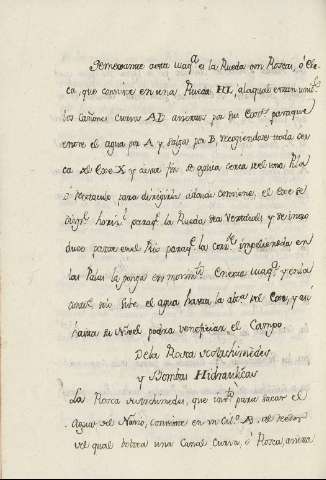 Semexante a esta maq.ª es la Rueda con Rosca, ó Cle
ca, que consiste en una Rueda HI, a la qual estan unid.s
los Cañones curvos AD anversos por su Cent.º para que
entre el agua por A, y salga por B, recogiendose toda cer
ca del Exe X y a este fin se aplica cerca del una Pila
ó Receptaculo para dirigirla a donde conviene, el Exe se
 horiz.l para q.e la Rueda sea Vertical, y se intro
duce parte en el Rio para q.e la corr.te impeliendola en
las Palas la ponga en movim.to. En esta maq.ª y en la
 no sube el agua hasta la alt.ª del Exe, y asi
hasta su Nivel podra veneficiar el Campo.
De la Rosca de Archimedes
y Bombas Hidraulicas
La Rosca de Archimedes, que inv.to para sacar el
Agua del Navio, consiste en un Cil.º AB, al rededor
del qual estara una Canal Curva, ó Rosca, asida